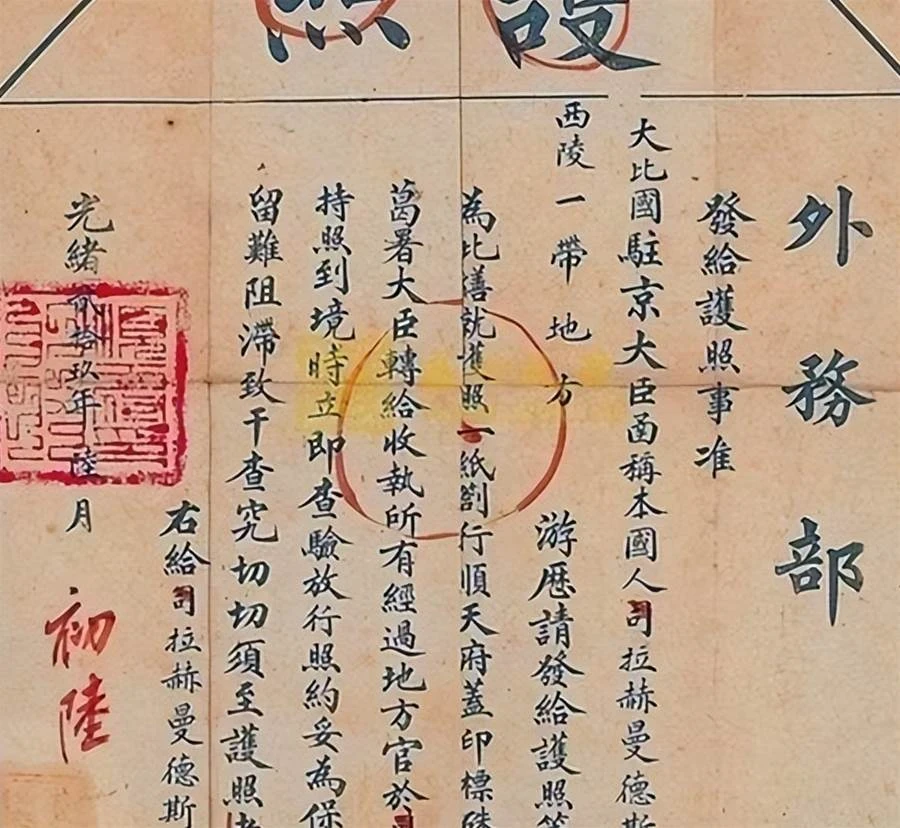 護照
外務部
發給護照事准
大比國駐京大臣函稱本國人司拉赫曼德斯
西陵一帶地方游歷請發給護照等
為此繕就護照一紙劄行順天府蓋印標硃
葛署大臣轉給收執所有經過地方官於
持照到境時立即查驗放行照約妥為保
留難阻滯致干查究切切須至護照者
右給司拉赫曼德斯
光緒貳拾玖年陸月初陸